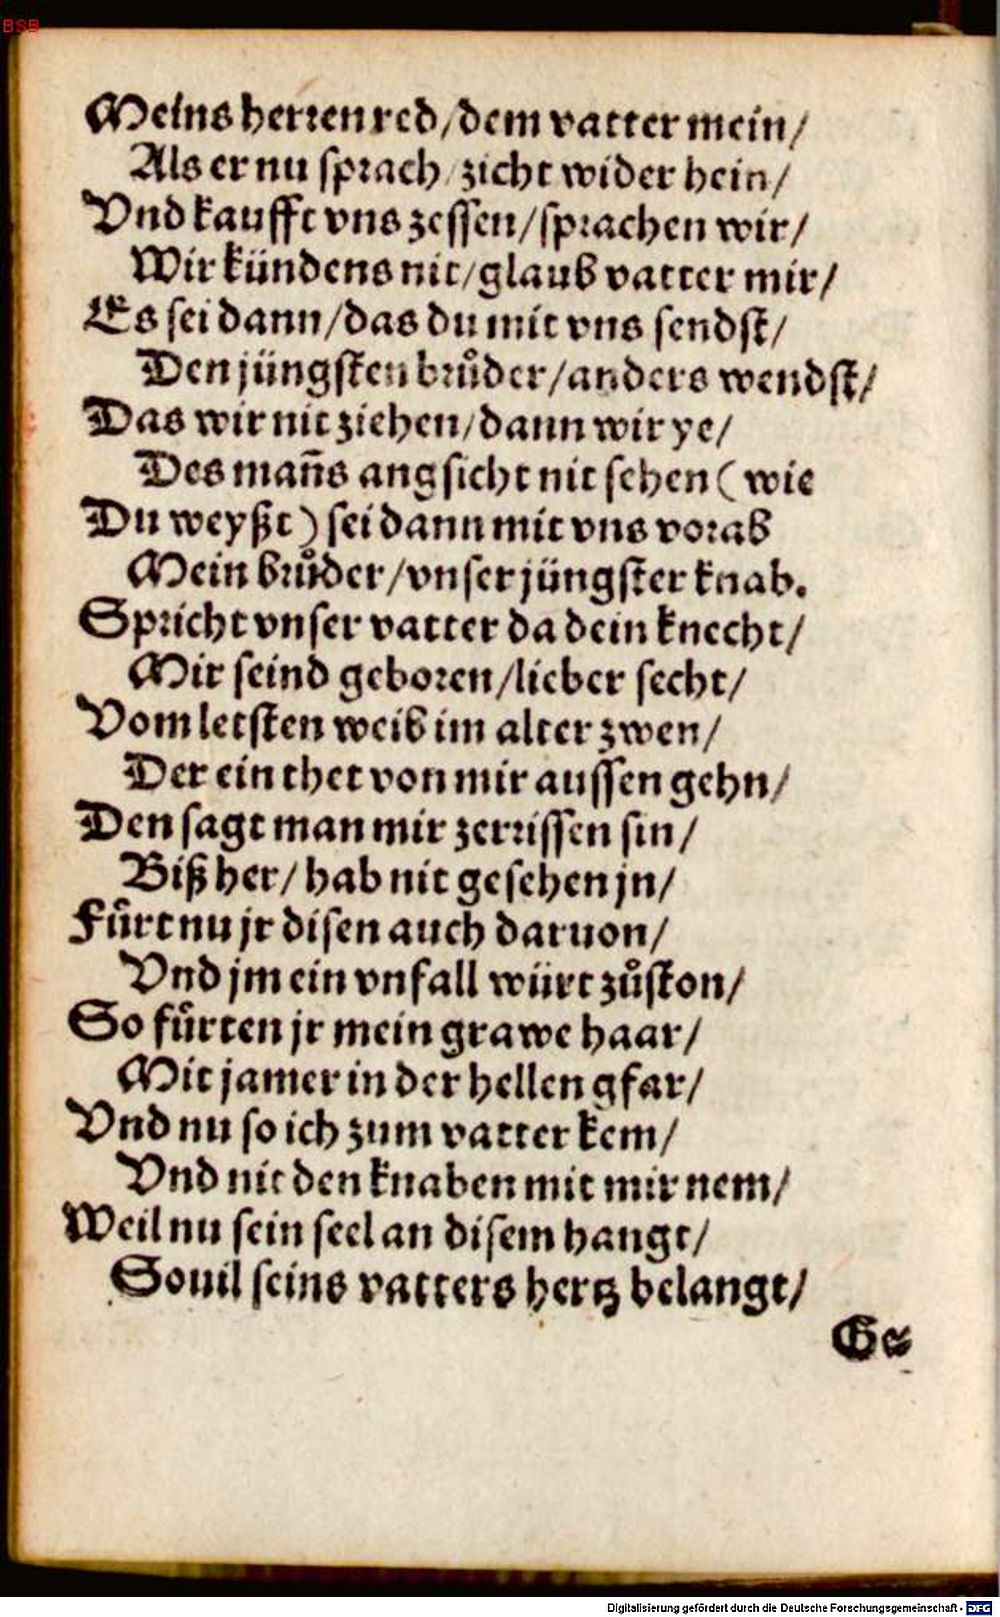 BSB
Meins herren red/dem vatter mein/
Als er nu sprach/zicht wider hein/
Vnd kaufft vns zessen/sprachen wir/
Wir kündens nit/glaub vatter mir/
Es sei dann/das du mit vns sendst/
Den jüngsten brůder/anders wendst/
Das wir nit ziehen/dann wir ye/
Des mañs angsicht nit sehen (wie
Du weyßt) sei dann mit vns vorab
Mein brůder/vnser jüngster knab.
Spricht vnser vatter da dein knecht/
Mir seind geboren/lieber secht/
Vom letsten weib im alter zwen/
Der ein thet von mir aussen gehn/
Den sagt man mir zerrissen sin/
Biß her/hab nit gesehen jn/
Fůrt nu jr disen auch daruon/
Vnd jm ein vnfall würt zůston/
So fůrten jr mein grawe haar/
Mit jamer in der hellen gfar/
Vnd nu so ich zum vatter kem/
Vnd nit den knaben mit mir nem/
Weil nu sein seel an disem hangt/
Souil seins vatters hertz belangt/
Ge⸗
Digitalisierung gefördert durch die Deutsche Forschungsgemeinschaft - DFG